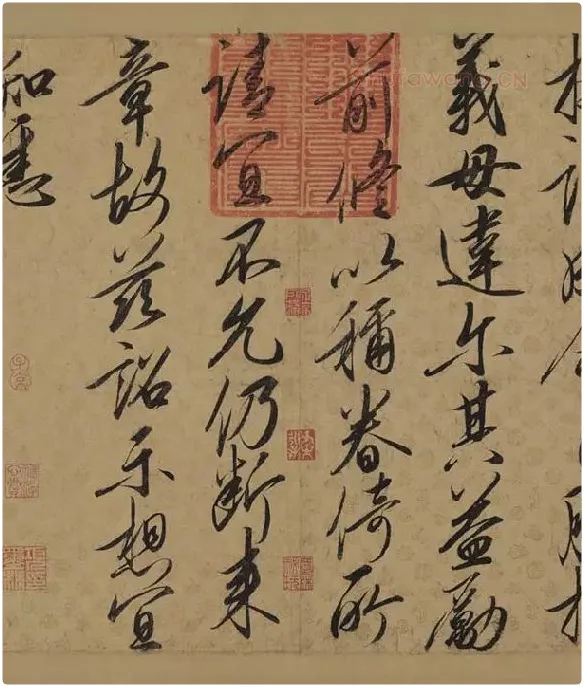 義毋違尔其益勵
前修以稱眷倚所
請宜不允仍斷來
章故茲詔示想宜
知悉